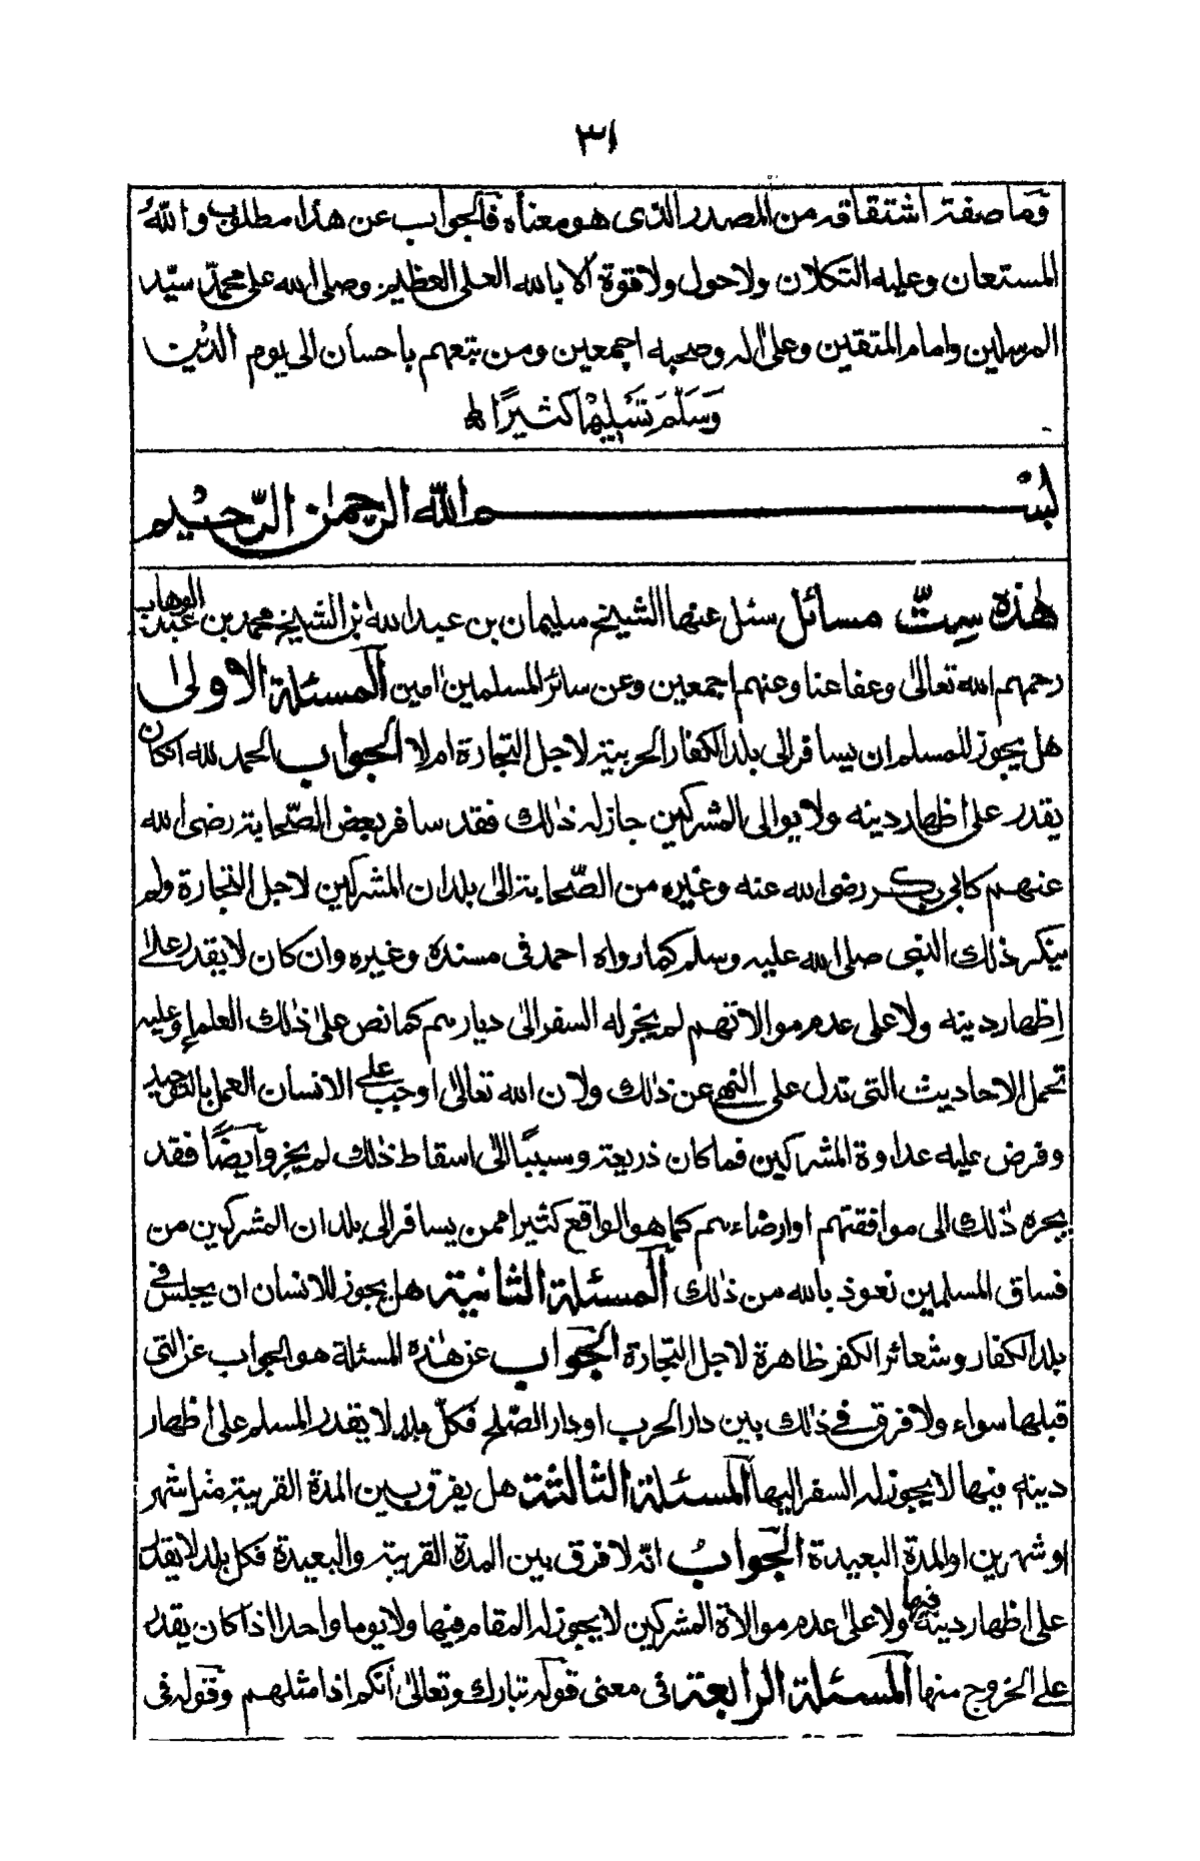 ٣١
وما صفة اشتقاقه من المصدر الذى هو معناه فالجواب عن هذا مطلوب والله
المستعان وعليه التكلان ولا حول ولا قوة الا بالله العلى العظيم وصلى الله على محمد سيّد
المرسلين وامام المتقين وعلى اله وصحبه اجمعين ومن تبعهم باحسان الى يوم الدين
وَسَلَّمَ تَسْلِيْمًا كثيرًا ط
بسم الله الرحمن الرحيم
هٰذه ستّ مسائل سئل عنها الشيخ سليمان بن عبد الله بن الشيخ محمد بن عبد الوهاب
رحمهم الله تعالى وعفا عنا وعنهم اجمعين وعن سائر المسلمين اٰمين المسئلة الاولىٰ
هل يجوز للمسلم ان يسافر الى بلد الكفار الحربية لاجل التجارة ام لا الجواب الحمد لله انكان
يقدر على اظهار دينه ولا يوالى المشركين جاز له ذٰلك فقد سافر بعض الصّحابة رضى الله
عنهم كابى بكر رضى الله عنه وغيره من الصّحابة الى بلدان المشركين لاجل التجارة ولم
ينكر ذٰلك النبى صلى الله عليه وسلم كما رواه احمد فى مسنده وغيره وان كان لا يقدر علىٰ
اِظهار دينه ولا على عدم موالاتهم لم يجز له السفر الىٰ ديارهم كما نص علىٰ ذٰلك العلماء وعليه
تحمل الاحاديث التى تدل على النهى عن ذٰلك ولان الله تعالىٰ اوجب على الانسان العمل بالتوحيد
وفرض عليه عداوة المشركين فما كان ذريعة وسببًا الى اسقاط ذٰلك لم يجز وايضًا فقد
يجره ذٰلك الى موافقتهم او ارضاءهم كما هو الواقع كثيرا ممن يسافر الى بلدان المشركين من
فساق المسلمين نعوذ بالله من ذٰلك المسئلة الثانية هل يجوز للانسان ان يجلس فى
بلد الكفار وشعائر الكفر ظاهرة لاجل التجارة الجواب عن هٰذه المسئلة هو الجواب عن التى
قبلها سواء ولا فرق فى ذٰلك بين دار الحرب او دار الصّلح فكلّ بلد لا يقدر المسلم على اظهار
دينه فيها لا يجوز له السفر اليها المسئلة الثالثة هل يفرق بين المدة القريبة مثل شهر
او شهرين او المدة البعيدة الجواب انه لا فرق بين المدة القريبة والبعيدة فكل بلد لا يقدر
على اظهار دينه فيها ولا على عدم موالاة المشركين لا يجوز له المقام فيها ولا يوما واحدا اذا كان يقدر
على الخروج منها المسئلة الرابعة فى معنى قوله تبارك وتعالىٰ انكم اذا مثلهم وقوله فى